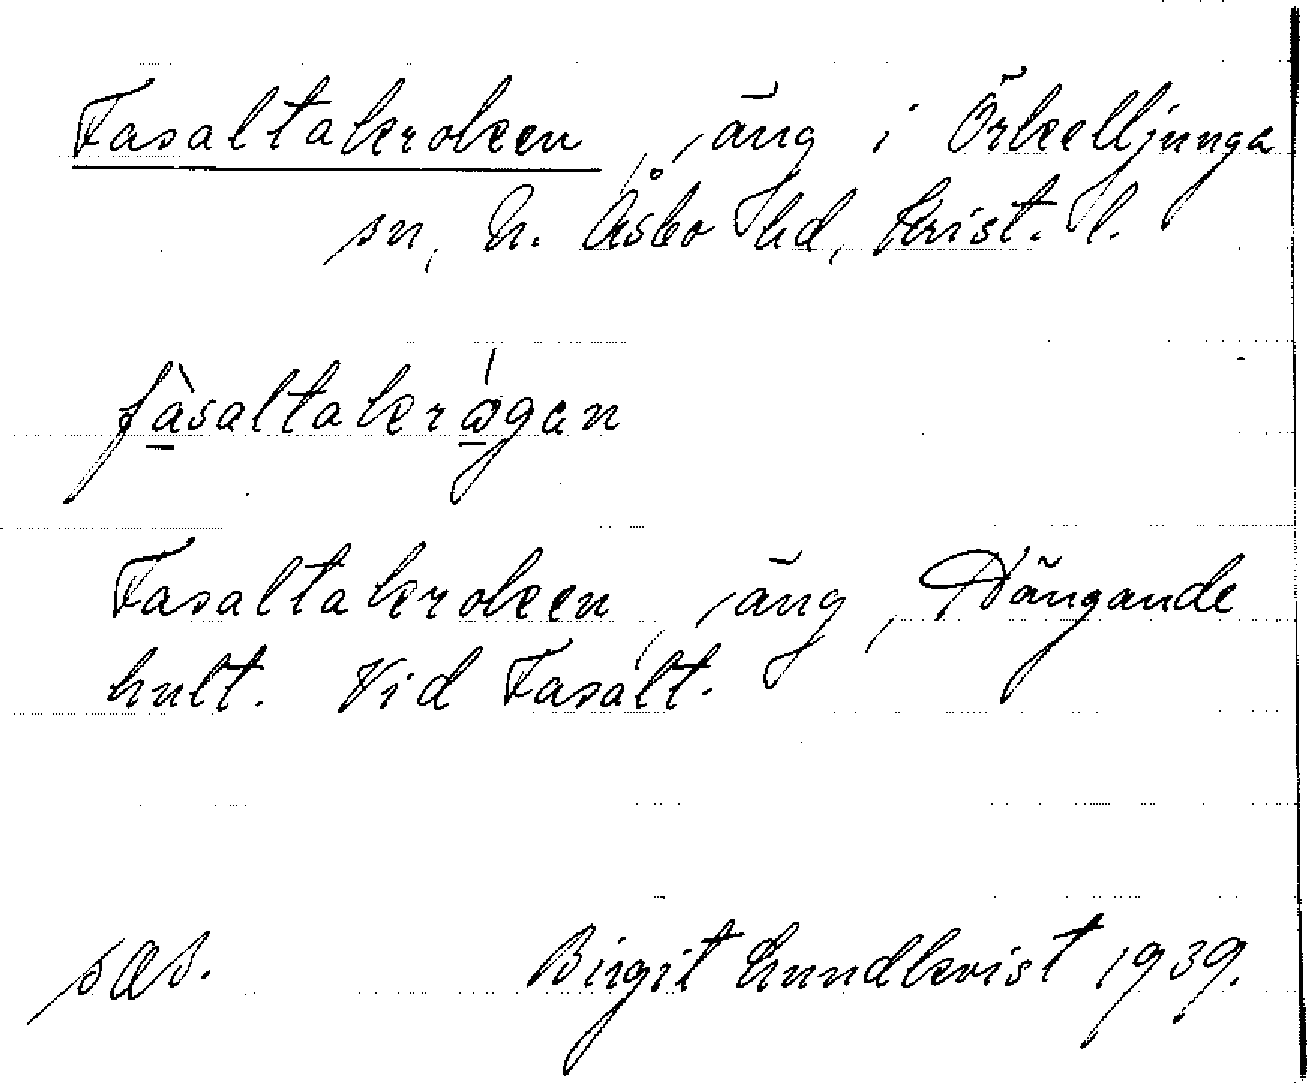 Fasaltakroken, äng i Örkelljunga
sn, N. Åsbo hd, Krist. l.
fàsaltakrágan
Fasaltakroken, äng, Drängande
hult. Vid Fasalt.
sæs. Birgit Lundkvist 1939.